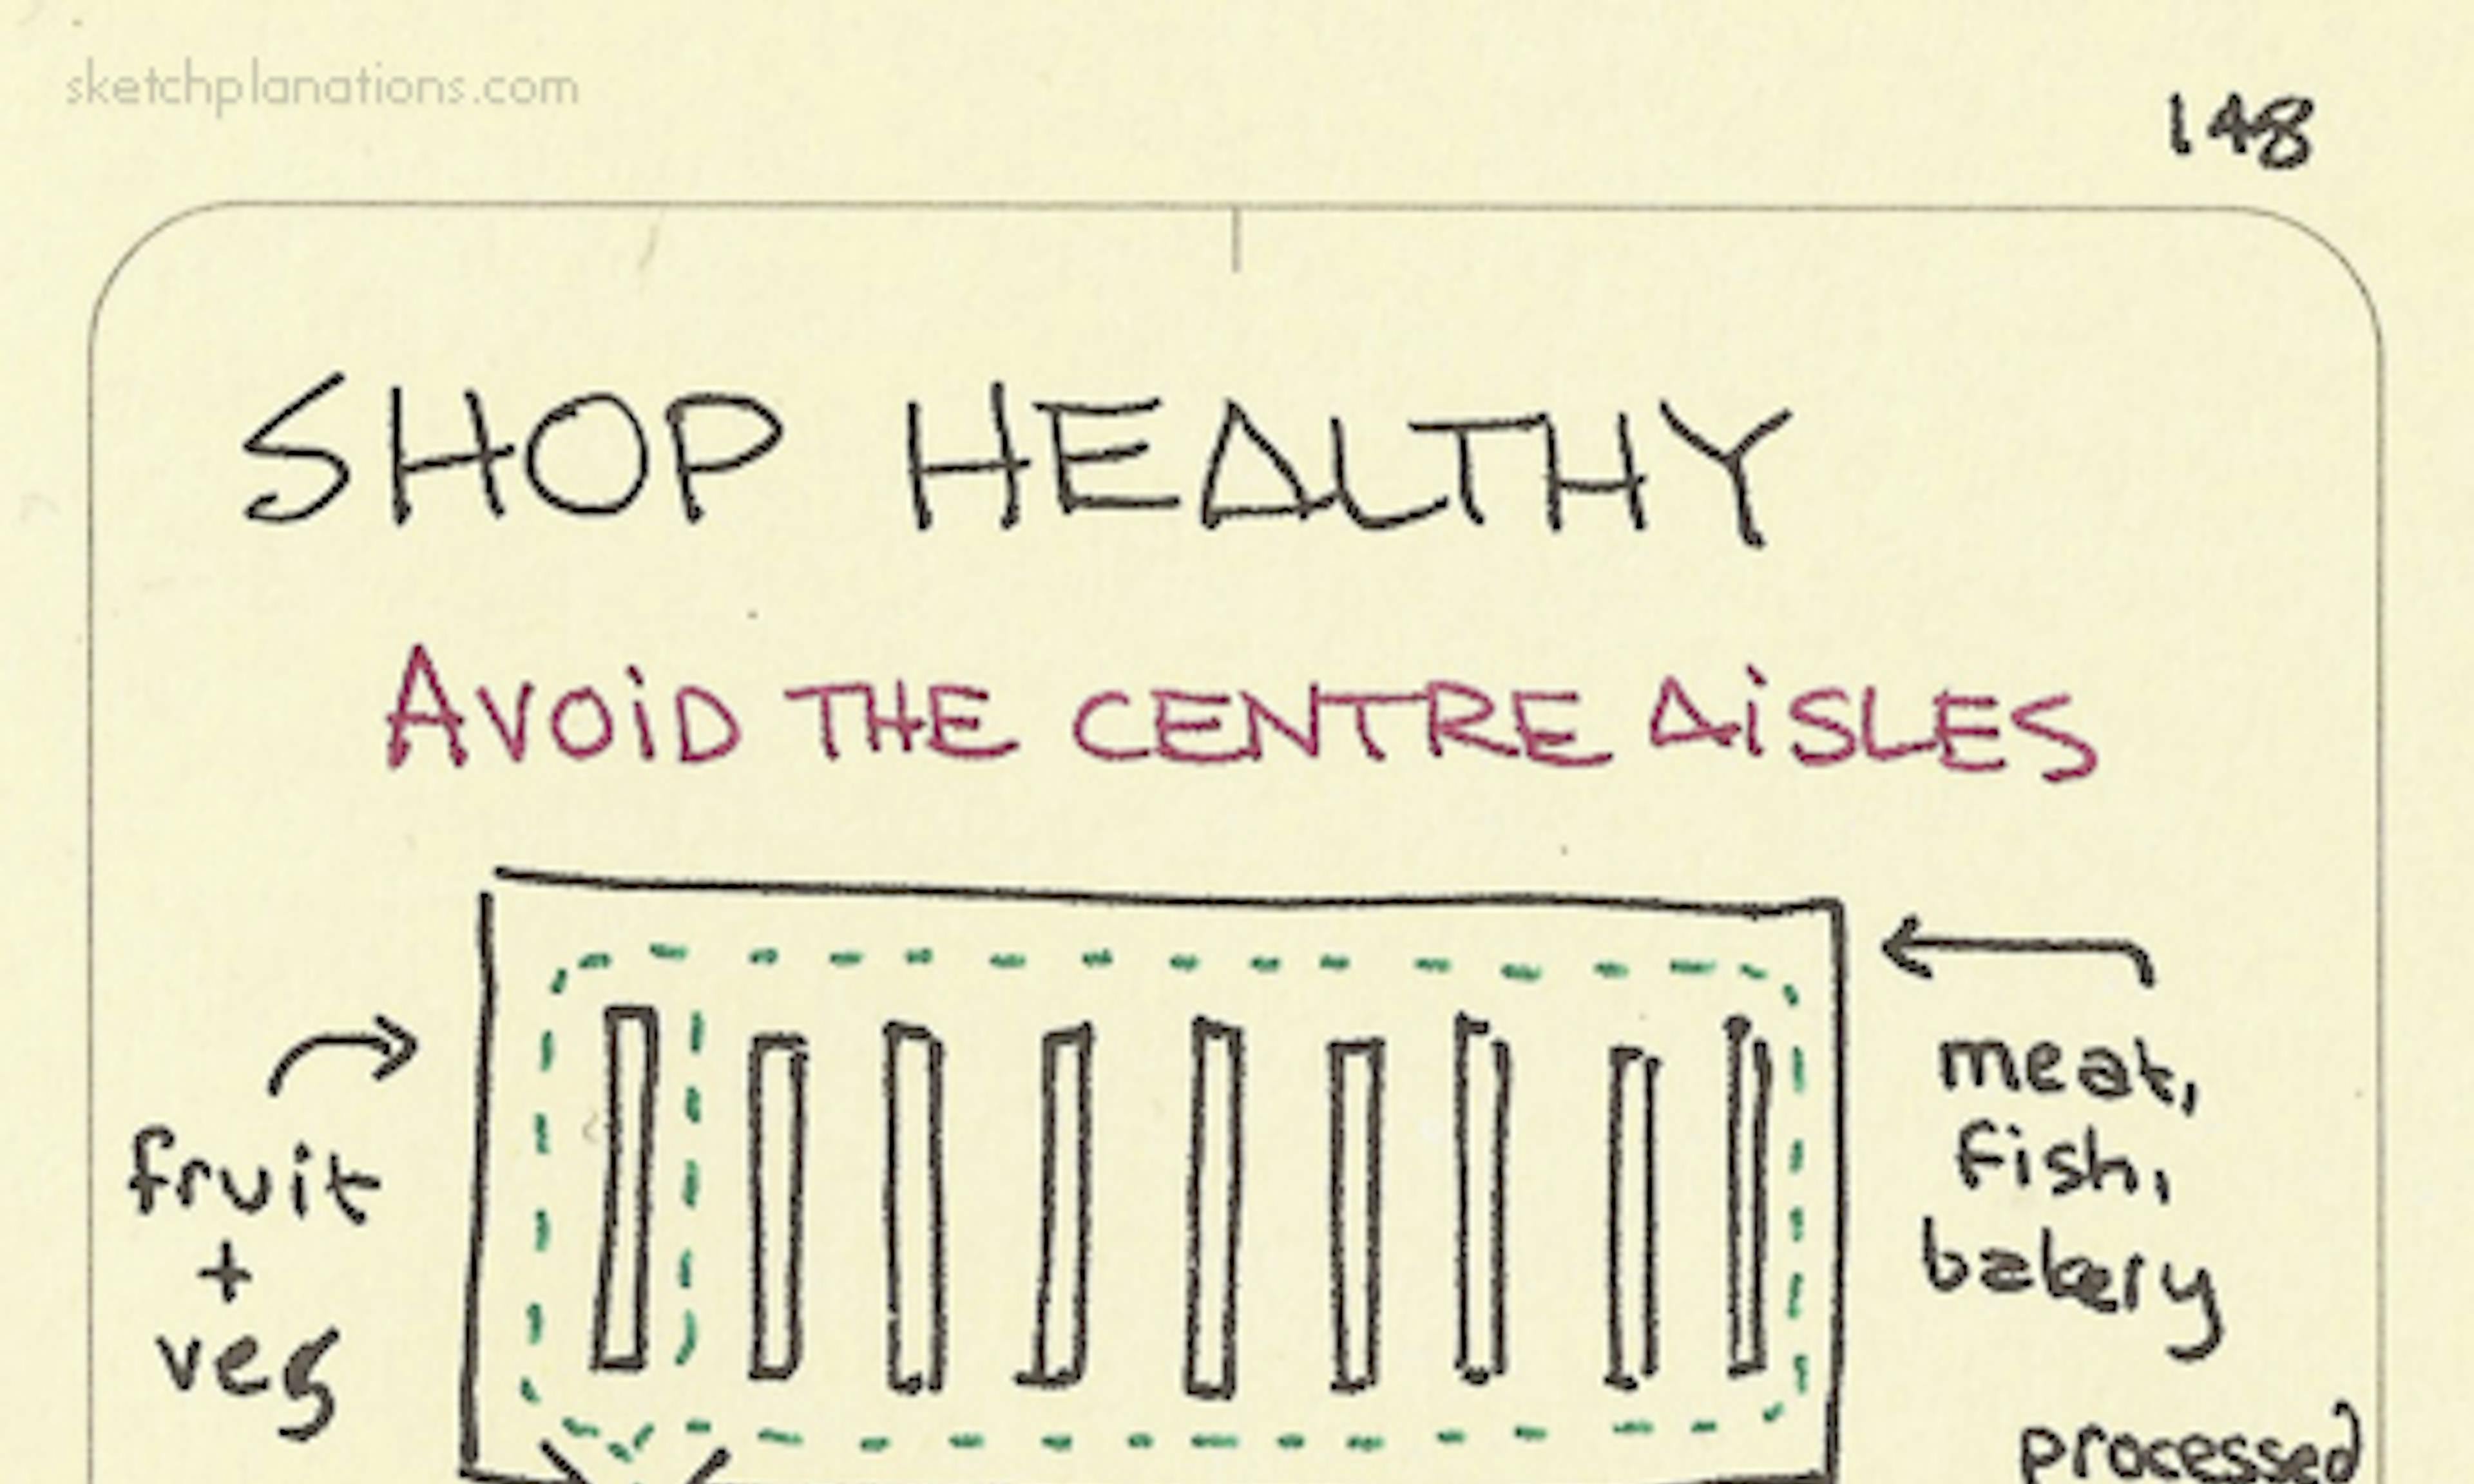 sketchplanations.com
148
SHOP HEALTHY
AVOiD THE CENTRE AiSLES
fruit
+
veg
meat,
fish,
bakery
processed